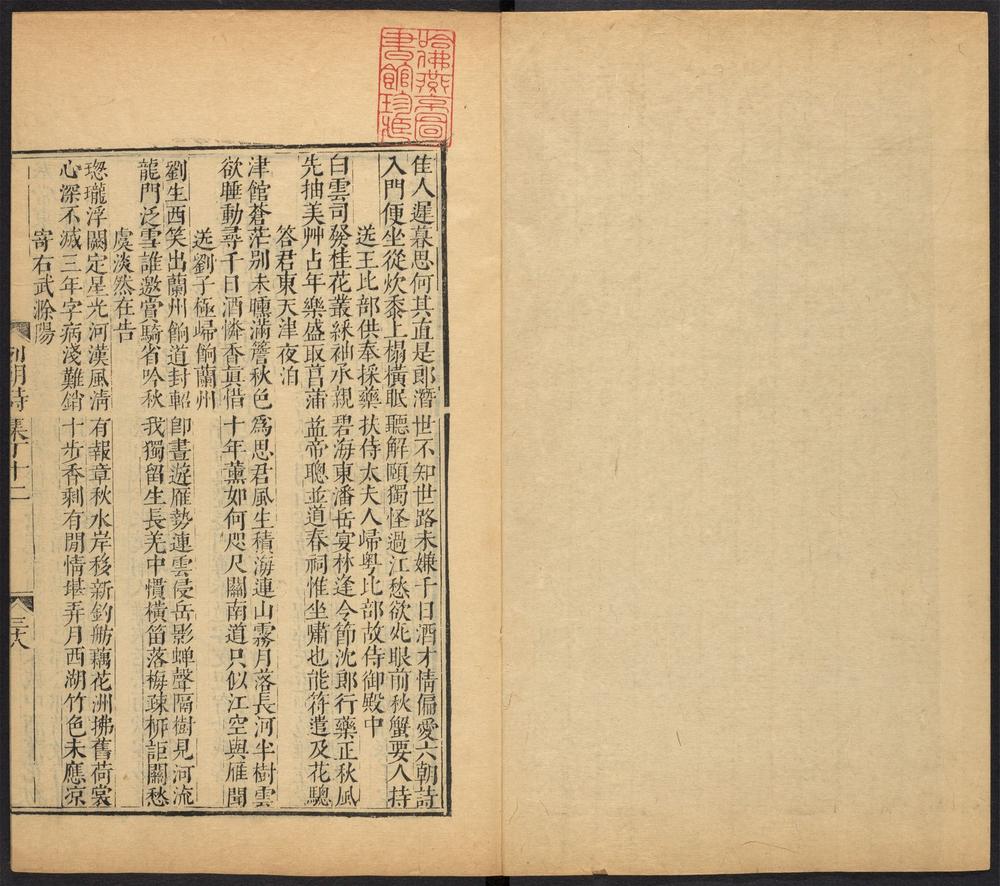 哈佛燕京圖
書館珍藏
佳人遲暮思何其直是郎潛世不知世路未嫌千日酒才情偏愛六朝詩
入門便坐從炊黍上榻橫眠聽解頤獨怪過江愁欲死眼前秋蟹要人持
送王比部供奉採藥扶侍太夫人歸粵比部故侍御殿中
白雲司發桂花叢綵袖承親碧海東潘岳宴林逢令節沈郎行藥正秋風
先抽美艸占年樂盛取菖蒲益帝聰並道春祠惟坐嘯也能符遣及花驄
答君東天津夜泊
津館蒼茫別未曛滿簷秋色為思君風生積海連山霧月落長河半樹雲
欲睡動尋千日酒憐香真惜十年薰如何咫尺關南道只似江空與雁聞
送劉子極歸餉蘭州
劉生西笑出蘭州餉道封軺即晝遊雁勢連雲侵岳影蟬聲隔樹見河流
龍門泛雪誰邀賞騎省吟秋我獨留生長羌中慣橫笛落梅疎柳詎關愁
虞淡然在告
璁瓏浮闕定星光河漢風清有報章秋水岸移新釣舫藕花洲拂舊荷裳
心深不滅三年字病淺難銷十步香剩有閒情堪弄月西湖竹色未應凉
寄右武滁陽
列朝詩集丁十二 三十八